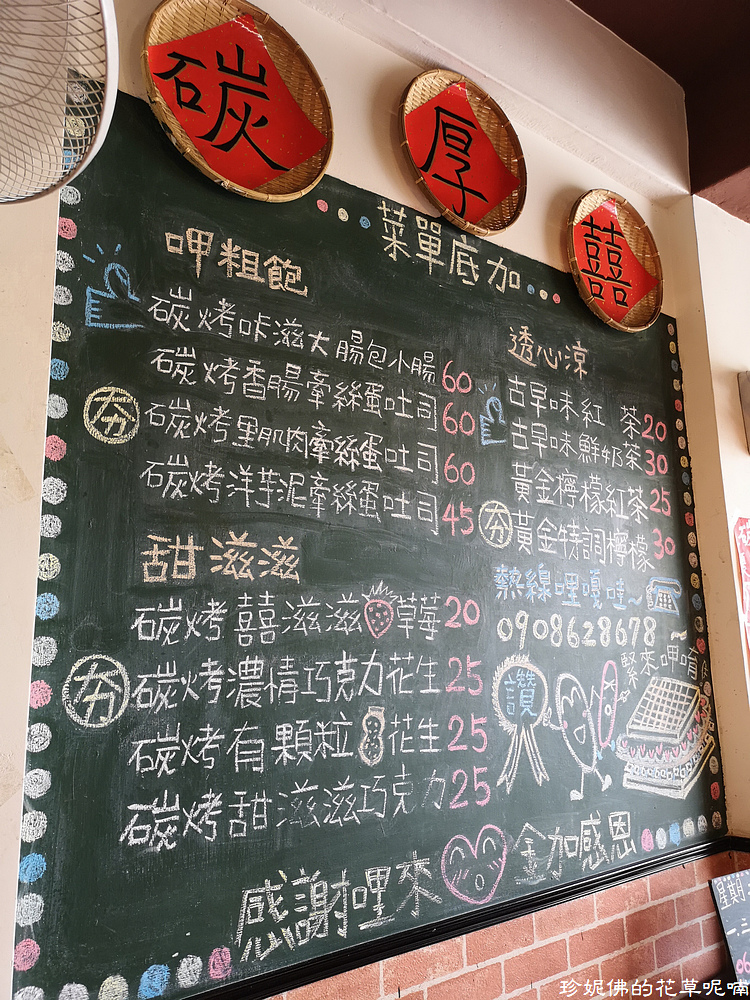 碳
厚
囍
菜單底加...
呷粗飽
碳烤咔滋大腸包小腸60
碳烤香腸牽絲蛋吐司60
夯
碳烤里肌肉牽絲蛋吐司60
碳烤洋芋泥牽絲蛋吐司45
甜滋滋
碳烤囍滋滋草莓20
夯
碳烤濃情巧克力花生25
碳烤有顆粒花生25
碳烤甜滋滋巧克力25
透心涼
古早味紅茶20
古早味鮮奶茶30
黃金檸檬紅茶25
夯
黃金特調檸檬30
熱線哩嘎哇~
0908628678~
讚
緊來呷唷
感謝哩來
金加感恩
星期
珍妮佛的花草呢喃